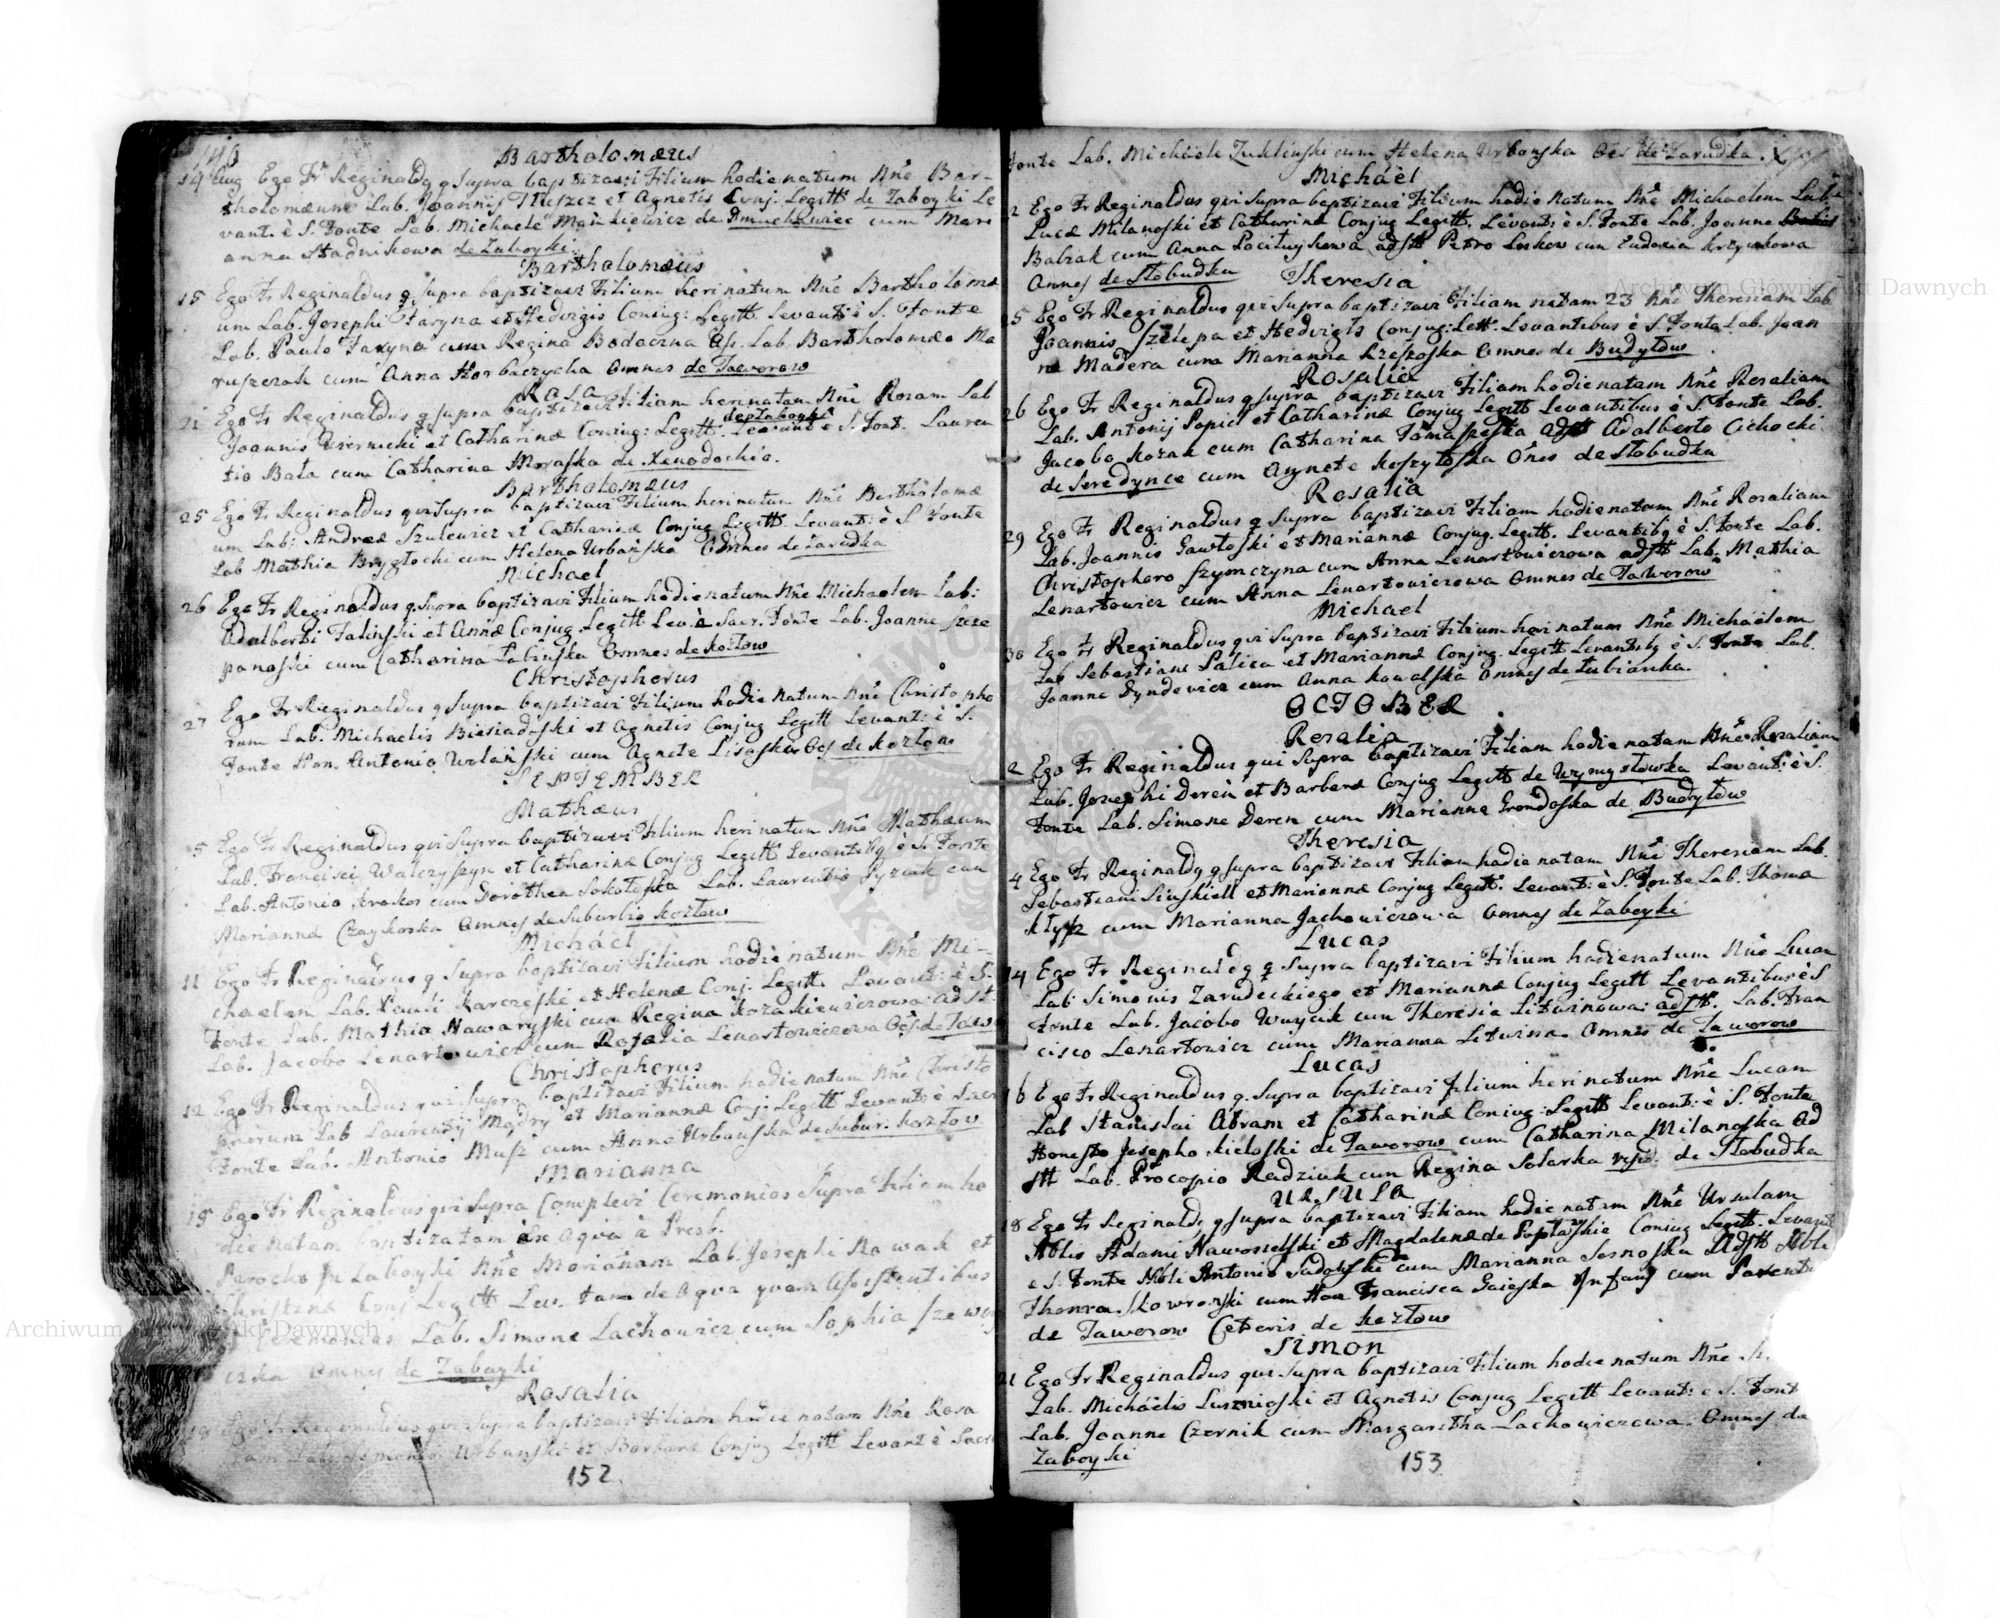 140
Bartholomæus
14 Aug Ego Fr Reginaldq q Supra baptizavi Filium hodie natum Nñe Bar-
tholomæum Lab. Joannis Tłuszcz et Agnetis Conj. Legitt de Zaboyki Le
vant. è S. Fonte Lab. Michaele Mackiewicz de Dmuchawiec cum Mari
anna Stadnikowa de Zaboyki.
Bartholomæus
15 Ego Fr Reginaldus q Supra baptizavi Filium heri natum Nñe Bartholomæ
um Lab. Josephi Faryna et Hedvigis Coniug: Legitt Levant: è S. Fonte
Lab. Paulo Faryna cum Regina Bodaczna Lab. Bartholomæo Ma
ruszczak cum Anna Horbaczycha Omnes de Jaworow
Rosa
21 Ego Fr Reginaldus q Supra baptizavi Filiam heri natam Nñe Rosam Lab
de Zaboyki
Joannis et Catharinæ Coniug: Legitt. Levant è S. Font. Lauren
tio Bala cum Catharina Morawska de Xenodochio.
Bartholomæus
25 Ego Fr Reginaldus qui Supra baptizavi Filium heri natum Nñe Bartholomæ
um Lab: Andreæ Szulewicz et Catharinæ Conjug Legitt. Levant: è S. Fonte
Lab Mathia cum Helena Urbańska Omnes de Zarudka
Michael
26 Ego Fr Reginaldus q Supra baptizavi Filium hodie natum Nñe Michaelem Lab:
Adalberti Falinski et Annæ Conjug. Legitt. Lev. è Sacr. Fonte Lab. Joanne Szcze
panoski cum Catharina Labinska Omnes de Kozłow
Christopherus
27 Ego Fr Reginaldus q Supra baptizavi Filium hodie natum Nñe Christopho
rum Lab. Michaelis Biesiadoski et Agnetis Conjug Legitt Levant: è S.
Fonte Hon. Antonio Wolański cum Agnete Lisoska Oẽs de Kozłow
SEPTEMBER
Mathæus
5 Ego Fr Reginaldus qui Supra baptizavi Filium heri natum Nñe Mathæum
Lab. Francisci Walczyszyn et Catharinæ Conjug Legitt Levantibq è S. Fonte
Lab. Antonio Krokos cum Dorothea Sokołoska Lab. Laurentio cum
Marianna Czaykoska Omnes de Suburbio Kozłow
Michäel
11 Ego Fr Reginaldus q Supra baptizavi Filium hodie natum Nñe Mi-
chaelem Lab. Pauli Karczeski et Helenæ Conj. Legitt. Levant: è S.
Fonte Lab. Mathia Nawaryski cum Regina Kozakiewiczowa: adst
Lab. Jacobo Lenartowicz cum Rosalia Lenartowiczowa Oẽs de Jaw
Christopherus
12 Ego Fr Reginaldus qui Supra baptizavi Filium hodie natum Nñe Christo
phorum Lab Laurentij Mądry et Mariannæ Conj: Legitt Levant: è Sacr
Fonte Lab. Antonio Musz cum Anna Urbanska de Subur. Kozłow
Marianna
15 Ego Fr Reginaldus qui Supra Complevi Ceremonias Supra Filiam ho
die natam baptizatam ex Aqua à Presb.
Parocho in Zaboyki Nñe Mariañam Lab. Josephi Nowak et
Christinæ Conj Legitt Lev. tam de Aqva qvam Assistentibus
Ceremonias Lab. Simone Lachowicz cum Sophia Szewc
Omnes de Zaboyki
Rosalia
18 Ego Fr Reginaldus qui Supra baptizavi Filiam hodie natam Nñe Rosa
Urbanski et Barbaræ Conjug Legitt Levant è Sacr
152.
Fonte Lab. Michäele Zuklinski cum Helena Urbanska Oẽs de Zarudka.
Michäel
Ego Fr Reginaldus qui Supra baptizavi Filium hodie Natum Nñe Michaelem Lab.
Lucæ Milanoski et Catharinæ Conjug Legitt. Levant: è S. Fonte Lab. Joanne
Babzak cum Anna adstt Petro Leskow cum Eudoxia Krzyukowa
Omnes de Słobudka
Theresia
25 Ego Fr Reginaldus qui Supra baptizavi Filiam natam 23 Nñe Theresiam Lab
Joannis Szelepa et Hedvigis Conjug: Lett. Levantibus è S. Fonte Lab. Joan
ne Madera cum Marianna Rzeszoska Omnes de Budyłow.
Rosalia
26 Ego Fr Reginaldus q Supra baptizavi Filiam hodie natam Nñe Rosaliam
Lab. Antonij Popiel et Catharinæ Conjug Legitt Levantibus è S. Fonte Lab.
Jacobo Kozak cum Catharina Tomaszeska adstt Adalberto Cichocki
de Seredynce cum Agnete Koszytoska Oñes de Słobudka
Rosalia
29 Ego Fr Reginaldus q Supra baptizavi Filiam hodie natam Nñe Rosaliam
Lab. Joannis Gawłoski et Mariannæ Conjug. Legitt. Levantibq è S. Fonte Lab.
Christophoro Szymczyna cum Anna Lenartowiczowa adstt Lab. Mathia
Lenartowicz cum Anna Lenartowiczowa Omnes de Jaworow
Michael
30 Ego Fr Reginaldus qui Supra baptizavi Filium heri natum Nñe Michäelem
Lab Sebastiani Palica et Mariannæ Conjug. Legitt Levantibq è S. Fonte Lab.
Joanne Dyndewicz cum Anna Kowalska Omnes de Łubianka.
OCTOBER
Rosalia
2 Ego Fr Reginaldus qui Supra baptizavi Filiam hodie natam Nñe Rosaliam
Lab. Josephi Deren et Barbaræ Conjug Legitt de Wymysłowka Levant: è S.
Fonte Lab. Simone Deren cum Marianna Grondoska de Budyłow
Theresia
4 Ego Fr Reginaldq q Supra baptizavi Filiam hodie natam Nñe Theresiam Lab.
Sebastiani Sinskiell et Mariannæ Conjug Legitt. Levant: è S. Fonte Lab. Thoma
Kłysz cum Marianna Jachowiczowa Omnes de Zaboyki
Lucas
14 Ego Fr Reginaldq q Supra baptizavi Filium hodie natum Nñe Lucam
Lab Simonis Zarudeckiego et Mariannæ Conjug Legitt Levantibus è S
Fonte Lab. Jacobo Wuycik cum Theresia Litwinowa: adstt. Lab. Fran
cisco Lenartowicz cum Marianna Litwina. Omnes de Jaworow
Lucas
16 Ego Fr Reginaldus q. Supra baptizavi Filium heri natum Nñe Lucam
Lab Stanislai Abram et Catharinæ Coniug: Legitt Levant: è S. Fonte
Honesto Josepho Kieloski de Jaworow cum Catharina Milanoska Ad
stt Lab. Procopio Radziuk cum Regina Solarska rspd. de Słobudka
URSULA
18 Ego Fr Reginaldq q Supra baptizavi Filiam hodie natam Nñe Ursulam
Nblis Adami Nawosielski et Magdalenæ de Poptaskie Coniug Legitt. Levant
e S. Fonte Nbli Antonio Sadowski cum Marianna Sosnoska Adstt Nbli
Thoma Skowronski cum Hon Francisca Gaieska Infans cum Parenti
de Jaworow Ceteris de Kozłow
Simon
21 Ego Fr Reginaldus qui Supra baptizavi Filium hodie natum Nñe
Lab. Michäelis Lusznioski et Agnetis Conjug Legitt Levant: e S. Font
Lab. Joanne Czernik cum Margaritha Lachowiczowa. Omnes de
Zaboyki
153
Archiwum Główne Akt Dawnych